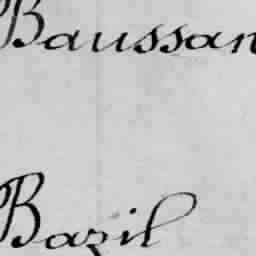 Baussan
Bazil